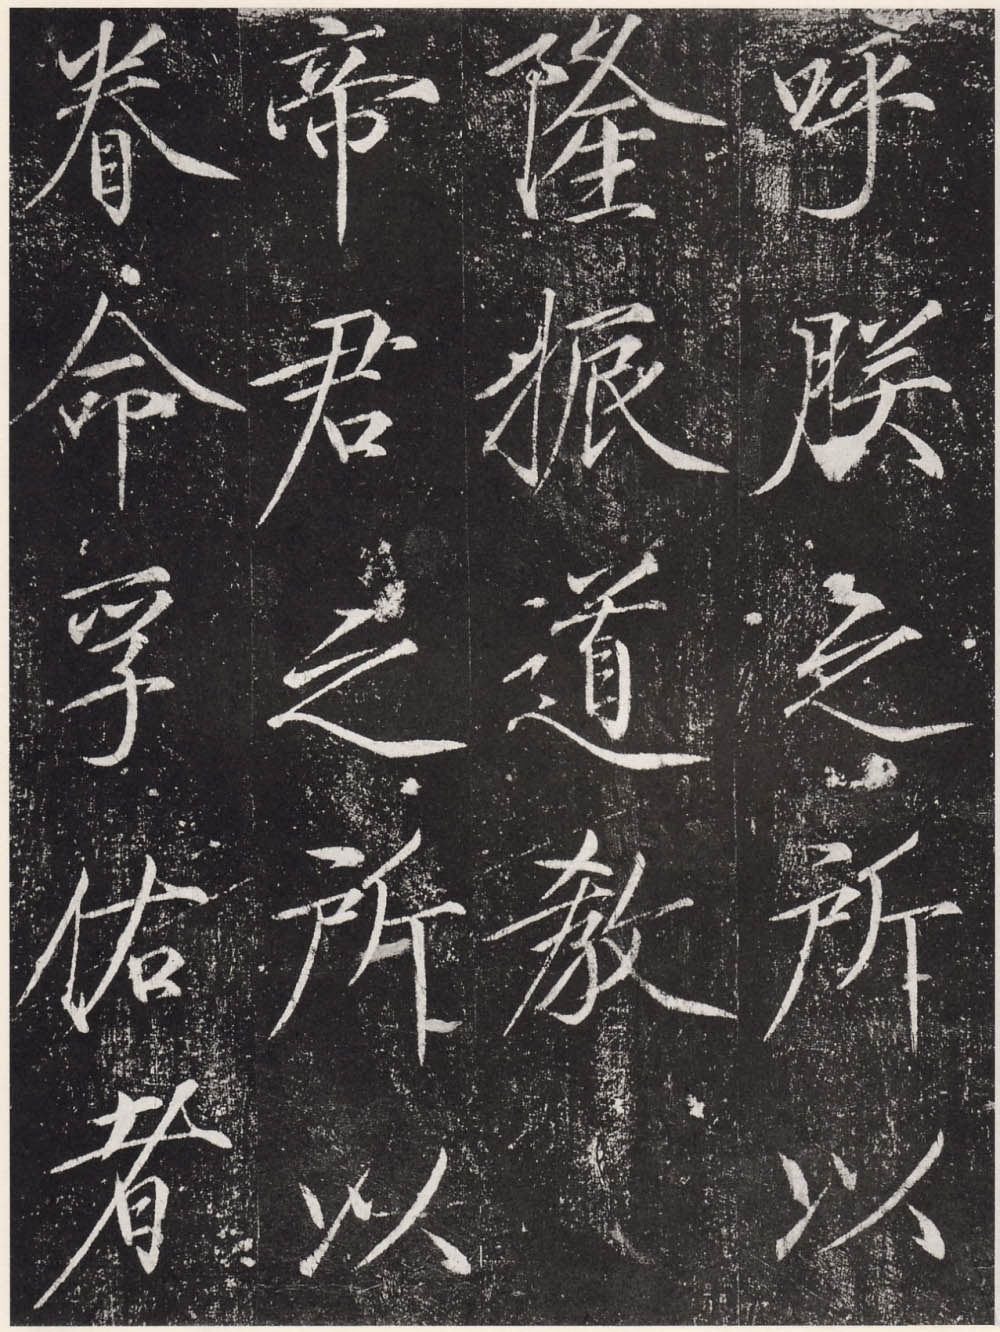 呼朕之所以
隆振道教
帝君之所以
眷命孚佑者